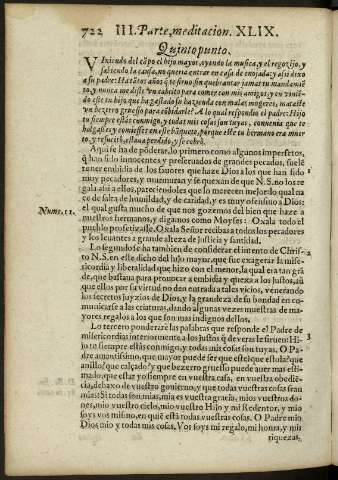 722 III. Parte, meditacion. XLIX.
Quinto punto.
Viniendo del cãpo el hijo mayor, oyendo la musica, y el regozijo, y
sabiendo la causa, no queria entrar en casa de enojado; y assi dixo
a su padre: Ha tãtos años q̃ te siruo sin quebrantar jamas tu mandamiẽ-
to, y nunca me diste vn cabrito para comer con mis amigos, y en vinie-
do este tu hijo que ha gastado su hazienda con malas mugeres, mataste
vn bezerro gruesso para cõbidarle? A lo qual respondio el padre: Hijo
tu siempre estàs conmigo, y todas mis cosas son tuyas, conuenia que te
holgasses y comiesses en este bãquete, porque este tu hermano era muer-
to, y resucitò, estaua perdido, y se cobrò.
Aqui se ha de põderar, lo primero como algunos imperfetos,
q̃ han sido innocentes y preseruados de grandes pecados, suelẽ
tener embidia de los fauores que haze Dios a los que han sido
muy pecadores, y murmuran y se quexan de que N.S. no los re
gala assi a ellos, pareciendoles que lo merecen mejor: lo qual na
ce de falta de humildad, y de caridad, y es muy ofensiuo a Dios:
el qual gusta mucho de que nos gozemos del bien que haze a
Num. 11. nuestros hermanos, y digamos como Moyses: Oxala todo el
pueblo profetizasse. Oxala Señor recibas a todos los pecadores
y los leuantes a grande alteza de justicia y santidad.
Lo segundo se ha tambien de considerar el intento de Chris- 2
to N.S. en este dicho del hijo mayor, que fue exagerar la mise-
ricordia y liberalidad que hizo con el menor, la qual era tan grã
de, que bastaua para prouocar a embidia y quexa a los justos, aũ
que ellos por su virtud no den entrada a tales vicios, venerando
los secretos juyzios de Dios, y la grandeza de su bondad en co-
municarse a las criaturas, dando algunas vezes muestras de ma-
yores regalos a los que son mas indignos dellos.
Lo tercero ponderarè las palabras que responde el Padre de 3
misericordias interiormente a los justos q̃ de veras le siruen: Hi-
jo tu siempre estàs conmigo, y todas mis cosas son tuyas. O Pa-
dre amantissimo, que mayor puede ser que este? que estola? que
anillo? que calçado? y que bezerro gruesso puede auer mas esti-
mado, que estar yo siempre en vuestra casa, en vuestra obediẽ-
cia, debaxo de vuestro gouierno, y que todas vuestras cosas sean
mias? Si todas son mias, mia es vuestra gracia, mios vuestros do-
nes, mio vuestro cielo, mio vuestro Hijo y mi Redentor, y mio
soys vos mismo, en quiẽ està todas vuestras cosas. O Padre mio
Dios mio y todas mis cosas. Vos soys mi regalo, mi honra, y mis
riquezas,